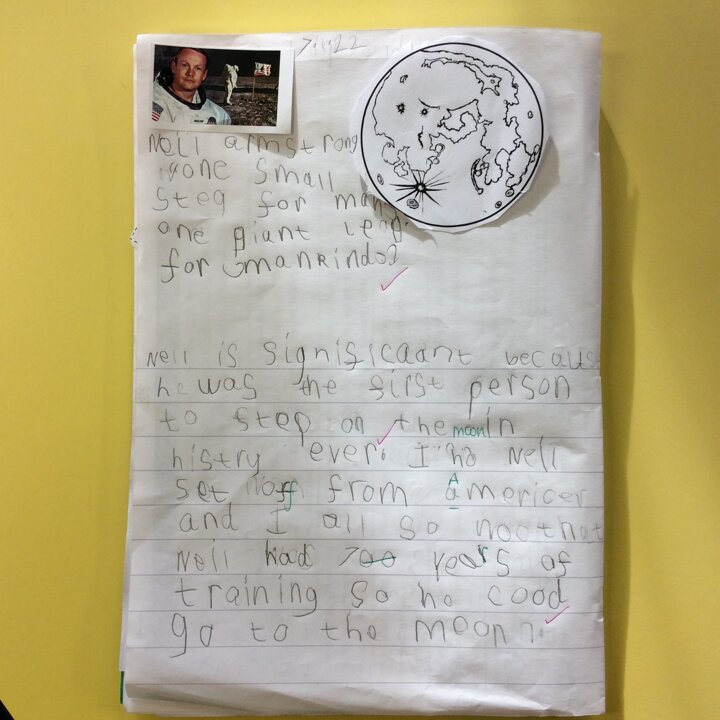 Neil armstrong
one small
steg for man
one giant leap
for mankind
Neil is significaant because
he was the first person
to step on the moon in
histry ever. I no Neil
set off from Americer
and I all so noo that
Neil had years of
training so he cood
go to the moon